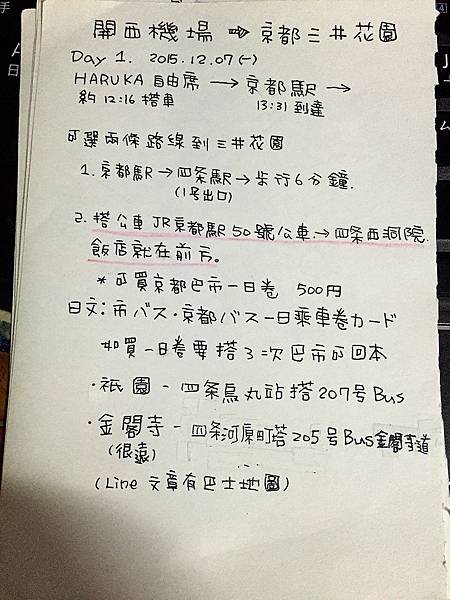 關西機場 ⇒ 京都三井花園
Day 1. 2015.12.07(一)
HARUKA 自由席 → 京都駅 →
約12:16 搭車 13:31 到達
可選兩條路線到三井花園
1. 京都駅 → 四条駅 → 步行6分鐘.
(1号出口)
2. 搭公車 JR京都駅 50號公車 → 四条西洞院.
飯店就在前方。
* 可買京都巴市一日卷 500円
日文：市バス・京都バス一日乗車卷カード
如買一日卷要搭3次巴市可回本
・祇園 - 四条烏丸站搭207号Bus
・金閣寺 - 四条河原町搭205号Bus金閣寺道
(很遠)
(Line 文章有巴士地圖)